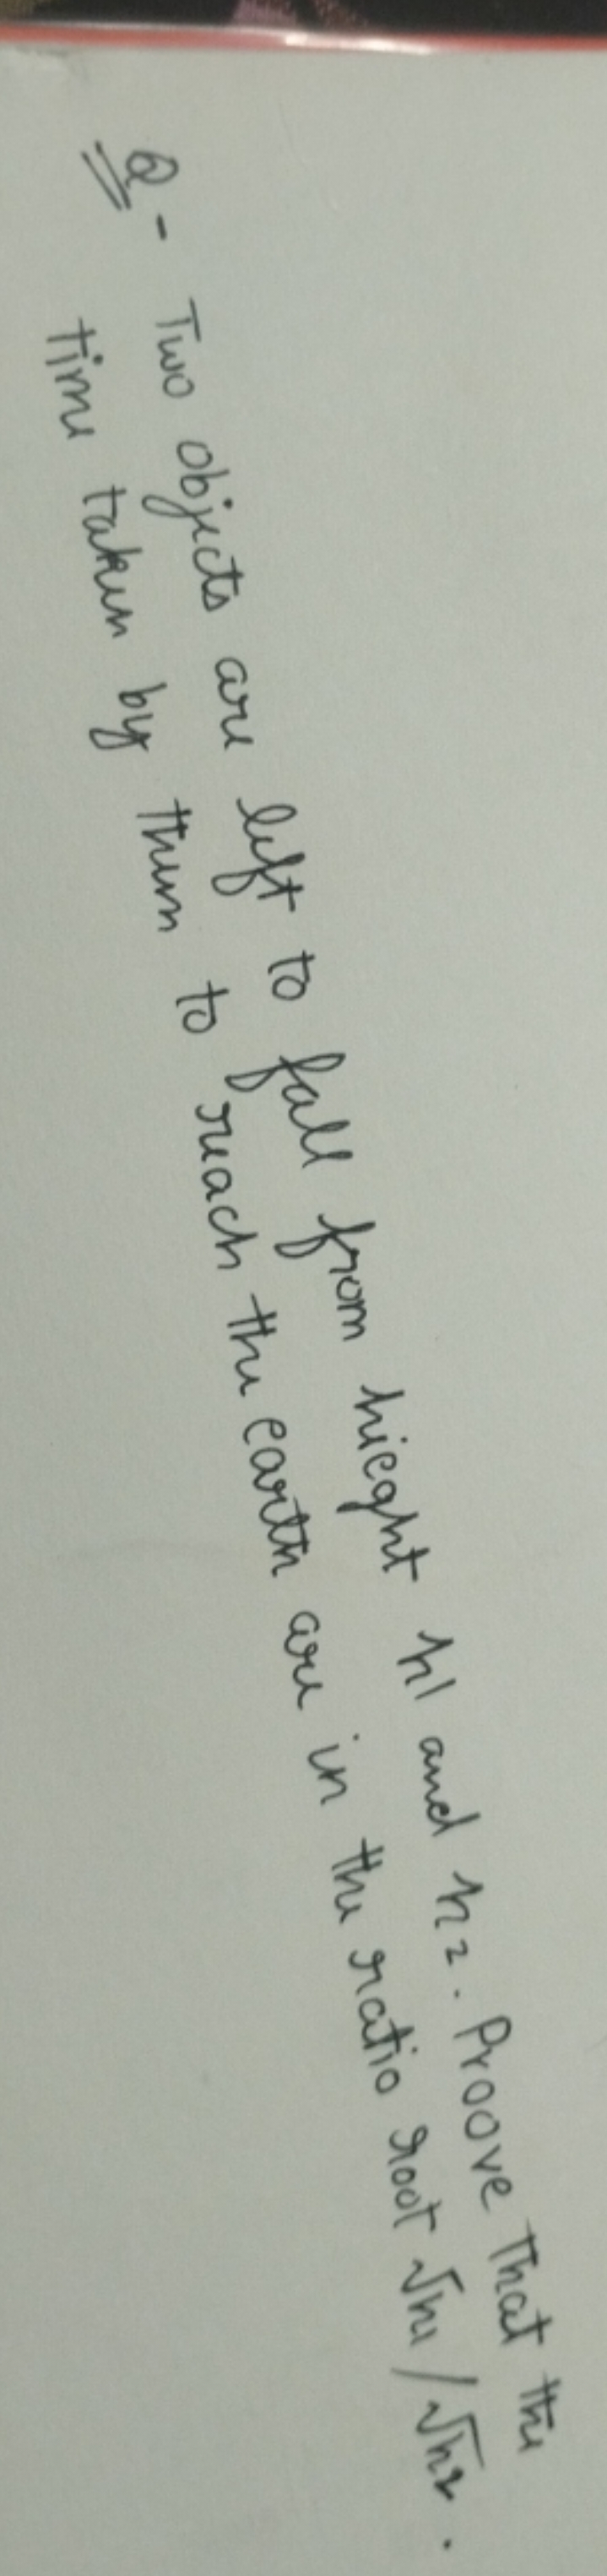 Q - Two objects are left to fall from hieght h1 and h2. Proove that the
time taken by them to reach the earth are in the ratio root √h1/√h2.